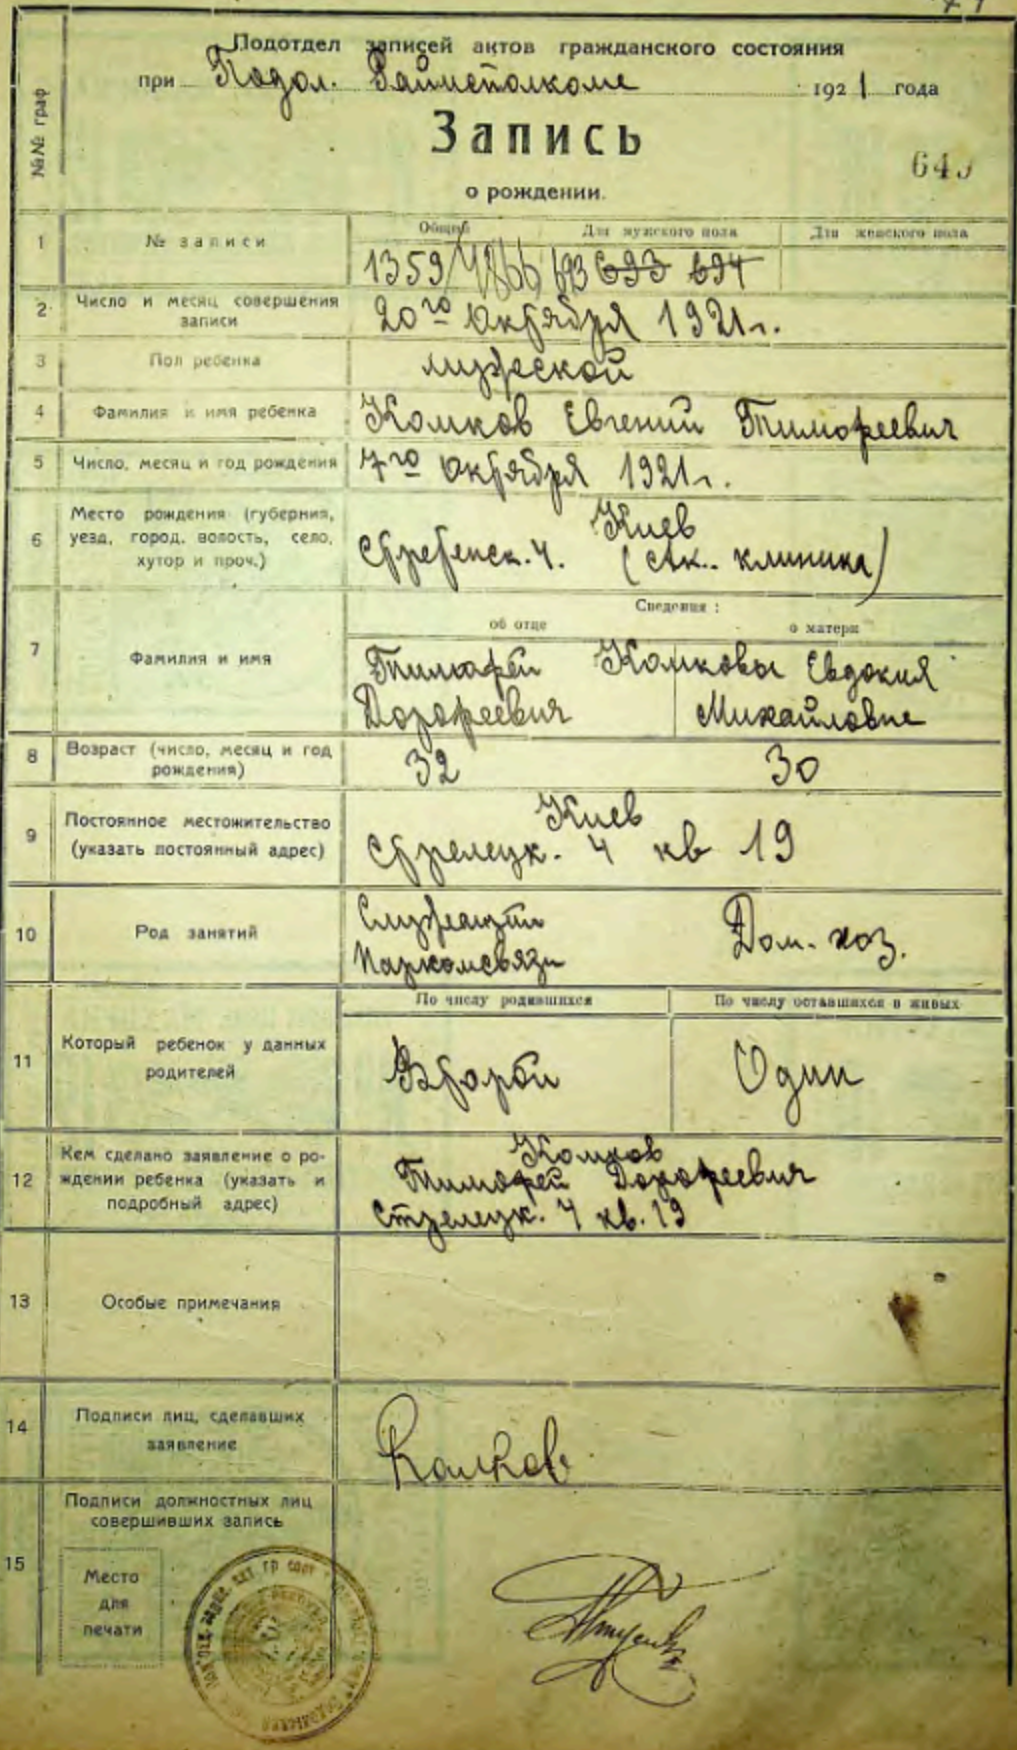 Подотдел записей актов гражданского состояния
при Подол. Райисполкоме 1921 года
Запись
о рождении.
№№ граф
1 № записи
Общий Для мужского пола Для женского пола
1359/4866 693 693 694
2 Число и месяц совершения
записи
20го Октября 1921 г.
3 Пол ребенка мужеской
4 Фамилия и имя ребенка Комков Евгений Тимофеевич
5 Число, месяц и год рождения 7го Октября 1921 г.
6 Место рождения (губерния,
уезд, город, волость, село,
хутор и проч.)
Киев
4. (Ак. клиника)
Сведения:
об отце о матери
7 Фамилия и имя
Тимофей Комковы Евдокия
Дорофеевич Михайловне
8 Возраст (число, месяц и год
рождения)
32 30
9 Постоянное местожительство
(указать постоянный адрес)
Киев
Стрелецк. 4 кв 19
10 Род занятий
Служащий Дом. хоз.
Наркомсвязи
По числу родившихся По числу оставшихся в живых
11 Который ребенок у данных
родителей
Второй Один
12 Кем сделано заявление о ро-
ждении ребенка (указать и
подробный адрес)
Комков
Тимофей Дорофеевич
Стрелецк. 4 кв. 19
13 Особые примечания
14 Подписи лиц, сделавших
заявление
Комков
15 Подписи должностных лиц
совершивших запись
Место
для
печати